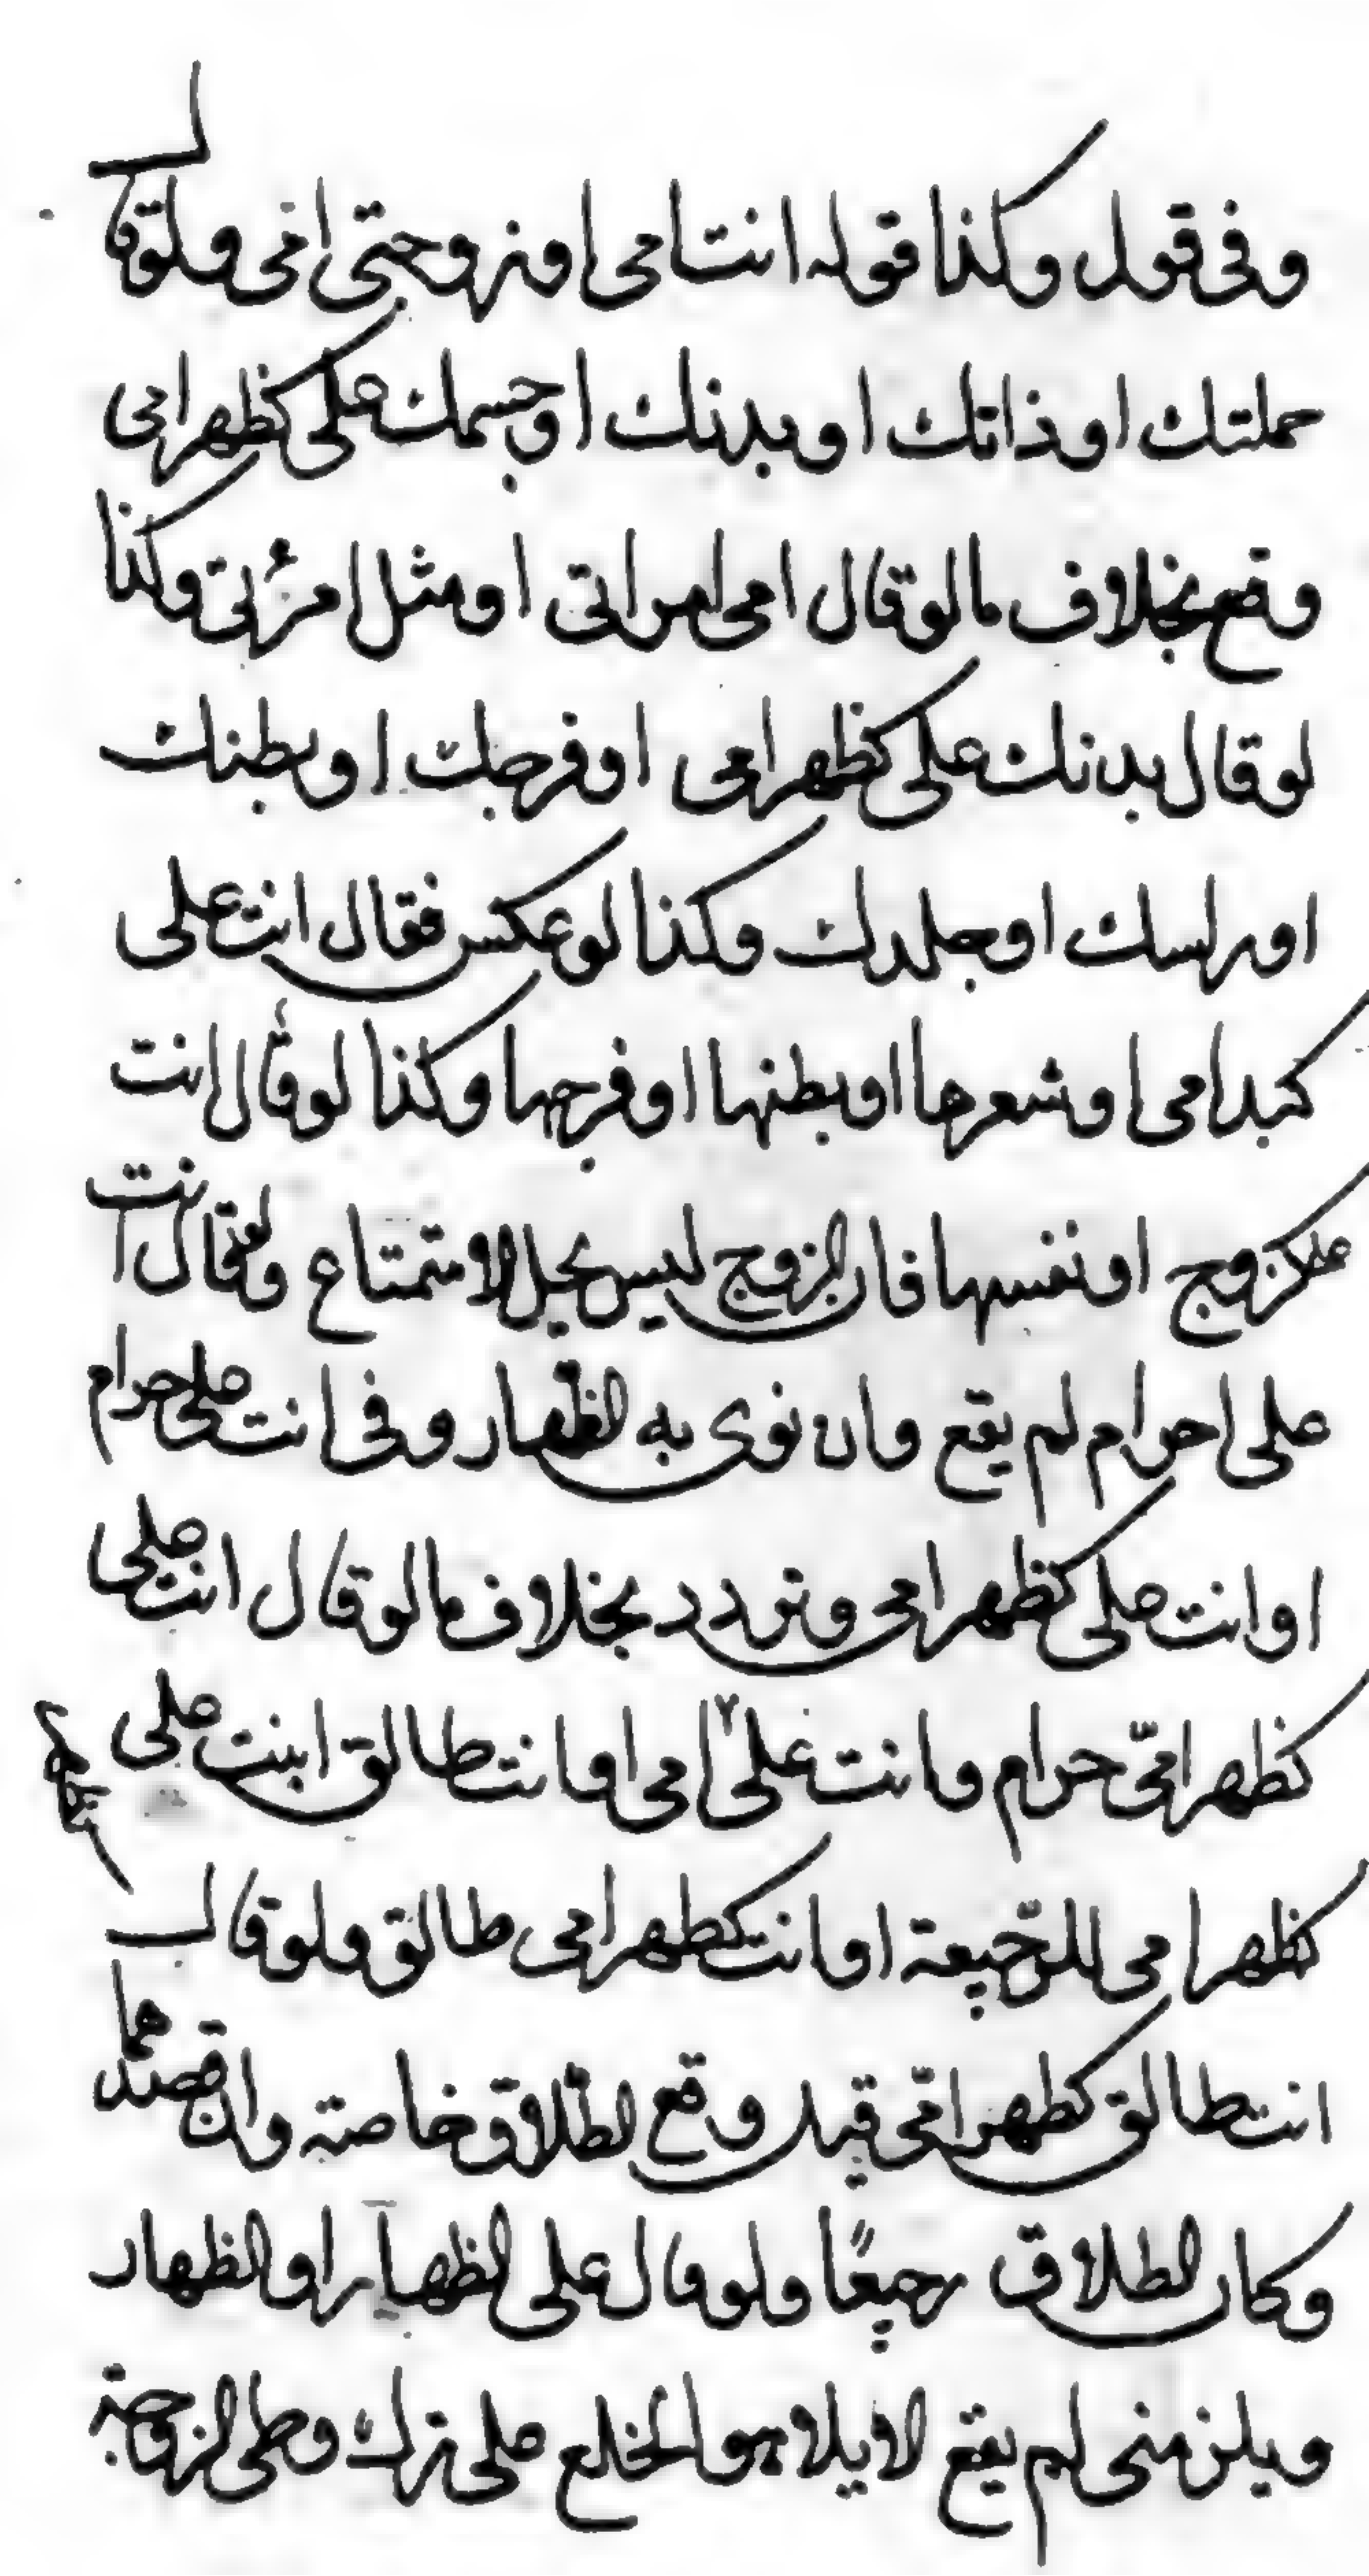 وفى قول وكذا قوله انت امى او زوجتى امى ولو قال
جملتك او ذاتك او بدنك او جسمك على كظهر امى
وقع بخلاف ما لو قال امى امراتى او مثل امرئتى وكذا
لو قال بدنك على كظهر امى او فرجك او بطنك
او راسك او جلدك وكذا لو عكس فقال انت على
كبد امى او شعرها او بطنها او فرجها وكذا لو قال انت
او نفسها فان الزوج ليس بحل الاستمتاع ولو قال انت
على احرام لم يقع وان نوى به الظهار وفى انت على حرام
او انت على كظهر امى وتردد بخلاف ما لو قال انت على
كظهر امّى حرام وانت على امى او انت طالق انت على
كظهر امى للرّجيعة او انت كظهر امى طالق ولو قال
انت طالق كظهر امّى قيل وقع الطلاق خاصة وان قصدهما
وكان الطلاق رجيعًا ولو قال على الظهار او الظهار
ويلزمنى لم يقع الايلا هو الخلع على ترك وطى الزوجة